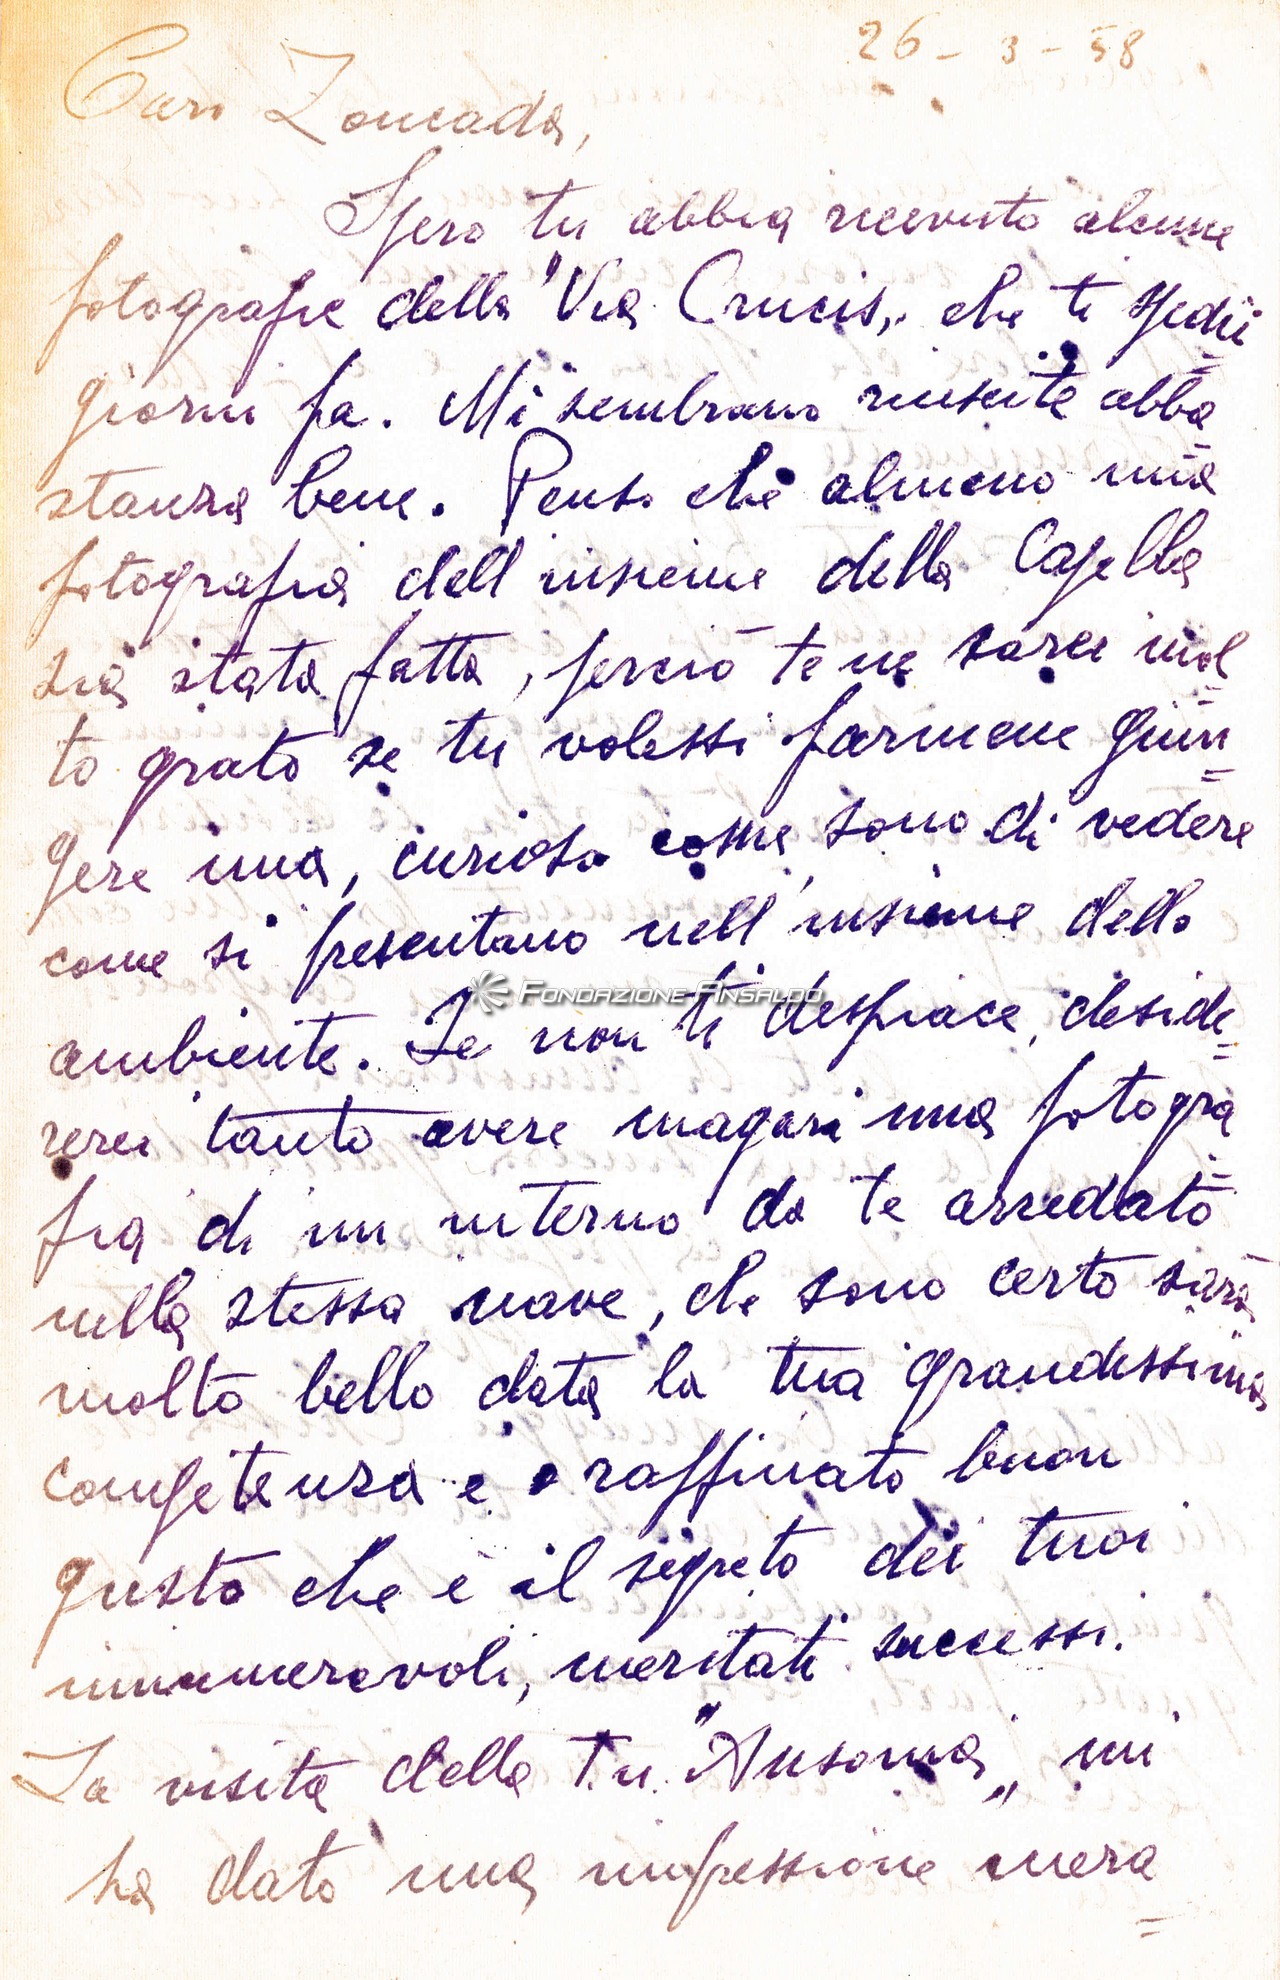 26-3-58
Caro Zoncada,
Spero tu abbia ricevuto alcune
fotografie della "Via Crucis„ che ti spedii
giorni fa. Mi sembrano riuscite abba=
stanza bene. Penso che almeno una
fotografia dell'insieme della Capella
sia stata fatta, perciò te ne sarei mol=
to grato se tu volessi farmene giun=
gere una, curioso come sono di vedere
come si presentano nell'insieme dello
FONDAZIONE ANSALDO
ambiente. Se non ti despiace, deside=
rerei tanto avere magari una fotogra=
fia di un interno da te arredato
nella stessa nave, che sono certo sarà
molto bello data la tua grandissima
competenza e raffinato buon
gusto che è il segreto dei tuoi
innumerevoli, meritati successi.
La visita della T.n. "Ausonia„ mi
ha dato una impressione mera=